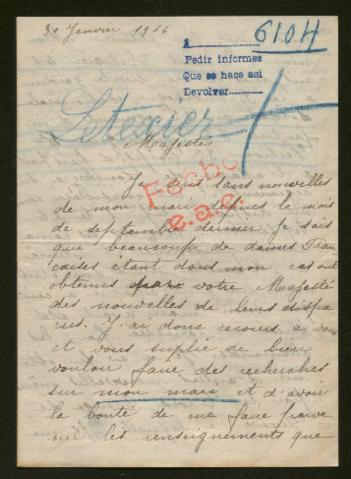 30 Janvier 1916
6104
A
Pedir informes
Que se hace asi
Devolver
Letexier
Majesté
Fecho
e.a.e.
Je suis sans nouvelles
de mon mari depuis le mois
de septembre dernier je sais
que beaucoup de dames Fran
caises étant dans mon cas ont
obtenues votre Majesté
des nouvelles de leurs dispa
rus. J'ai donc recours a vous
et vous suplie de bien
vouloir faire des recherches
sur mon mari et d'avoir
la bonté de me faire parve
nir les renseignements que